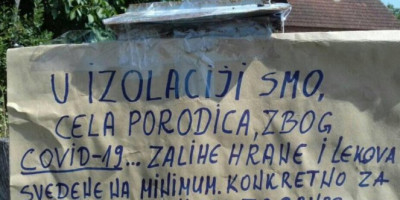 U IZOLACIJI SMO,
CELA PORODICA, ZBOG
COVID-19... ZALIHE HRANE I LEKOVA
SVEDENE NA MINIMUM. KONKRETNO ZA